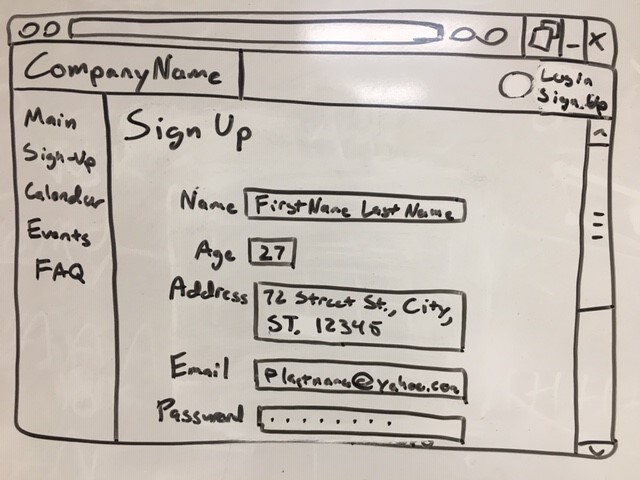 CompanyName
Login
Sign-Up
Main
Sign-Up
Calendar
Events
FAQ
Sign Up
Name FirstName LastName
Age 27
Address 72 Street St., City,
ST. 12345
Email Plastname@yahoo.com
Password ........